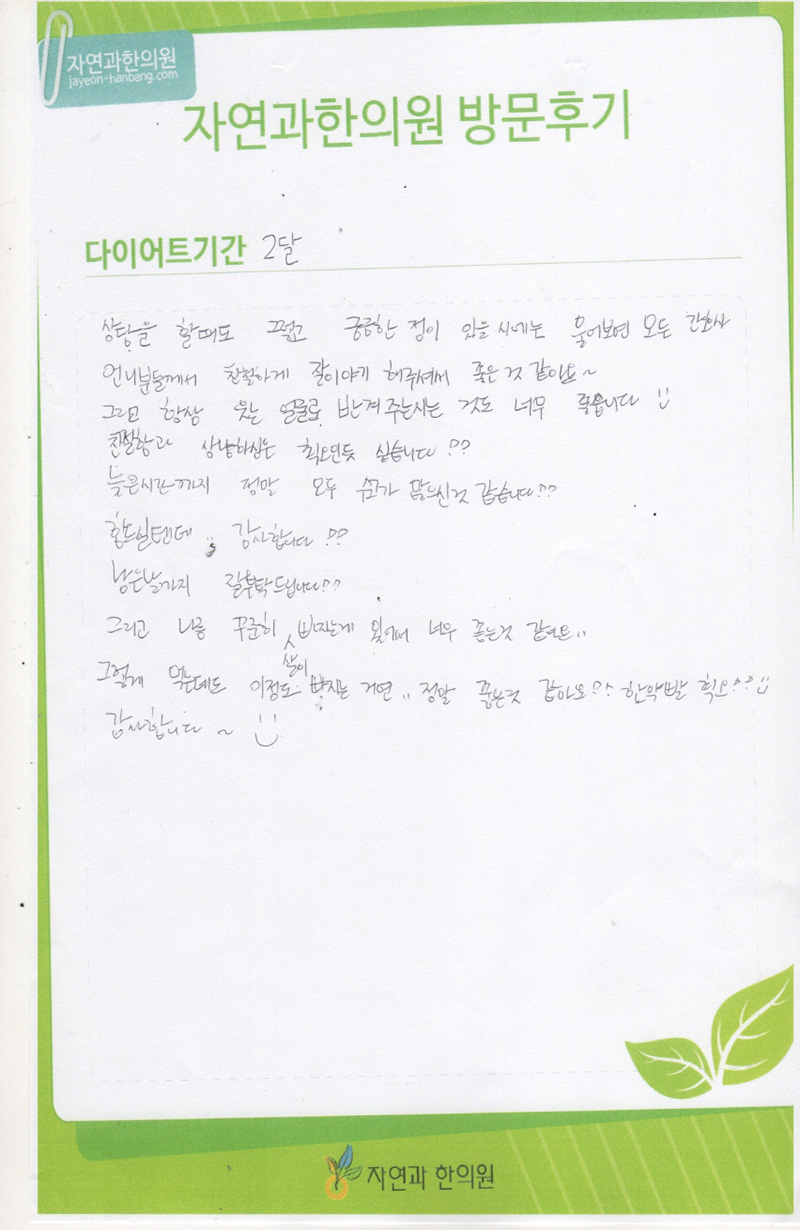 자연과한의원
jayeon-hanbang.com
자연과한의원 방문후기
다이어트기간 2달
상담을 할때도 그렇고 궁금한 점이 있을 시에는 물어보면 모든 간호사
언니분들께서 친절하게 잘이야기 해주셔서 좋은것 같아요~
그리고 항상 웃는 얼굴로 반겨주는시는 것도 너무 좋습니다 :)
친절함과 상냥하심은 최고인듯 싶습니다!??
늦은시간까지 정말 모두 수고가 많으신것 같습니다!??
힘드실텐데.. 감사합니다!??
남은날까지 잘부탁드립니다!??
그리고 나름 꾸준히 살이 빠지는게 있어서 너무 좋은것 같아요..
그렇게 먹는데도 이정도 빠지는 거면.. 정말 좋은것 같아요!?? 한약빨 최고!?? :)
감사합니다~ :)
자연과 한의원